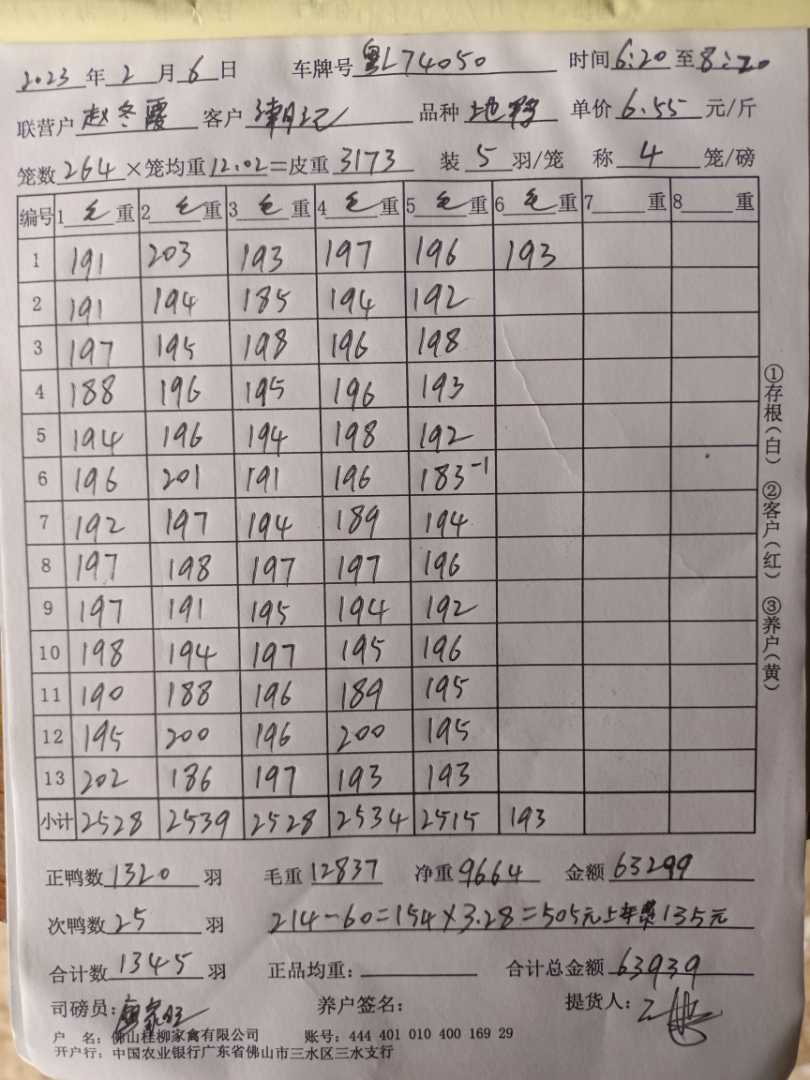 2023年2月6日 车牌号 粤L74050 时间6:20至8:20
联营户 赵冬霞 客户 潮记 品种 地鸭 单价 6.55 元/斤
笼数264×笼均重12.02=皮重3173 装5羽/笼 称4笼/磅
编号 1毛重 2毛重 3毛重 4毛重 5毛重 6毛重 7重 8重
1 191 203 193 197 196 193
2 191 194 185 194 192
3 197 195 198 196 198
4 188 196 195 196 193
5 194 196 194 198 192
6 196 201 191 196 183-1
7 192 197 194 189 194
8 197 198 197 197 196
9 197 191 195 194 192
10 198 194 197 195 196
11 190 188 196 189 195
12 195 200 196 200 195
13 202 186 197 193 193
小计 2528 2539 2528 2534 2515 193
正鸭数1320羽 毛重12837 净重9664 金额63299
次鸭数25羽 214-60=154×3.28=505元上车费135元
合计数1345羽 正品均重: 合计总金额63939
司磅员: 养户签名: 提货人:
户 名: 佛山桂柳家禽有限公司 账号: 444 401 010 400 169 29
开户行: 中国农业银行广东省佛山市三水区三水支行
①存根(白) ②客户(红) ③养户(黄)